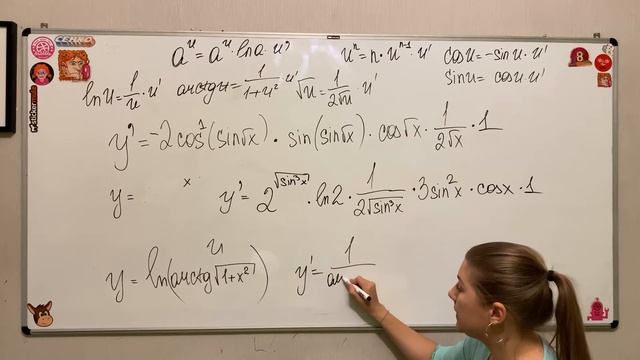 a^u = a^u · ln a · u' u^n = n · u^{n-1} · u' cos u = -sin u · u'
ln u = 1/u · u' arctg u = 1/(1+u²) · u' √u = 1/(2√u) · u' sin u = cos u · u'
y' = -2cos¹(sin√x) · sin(sin√x) · cos√x · 1/(2√x) · 1
y = x y' = 2^{√(sin³x)} · ln2 · 1/(2√(sin³x)) · 3sin²x · cosx · 1
u
y = ln(arctg√(1+x²)) y' = 1/ar
8